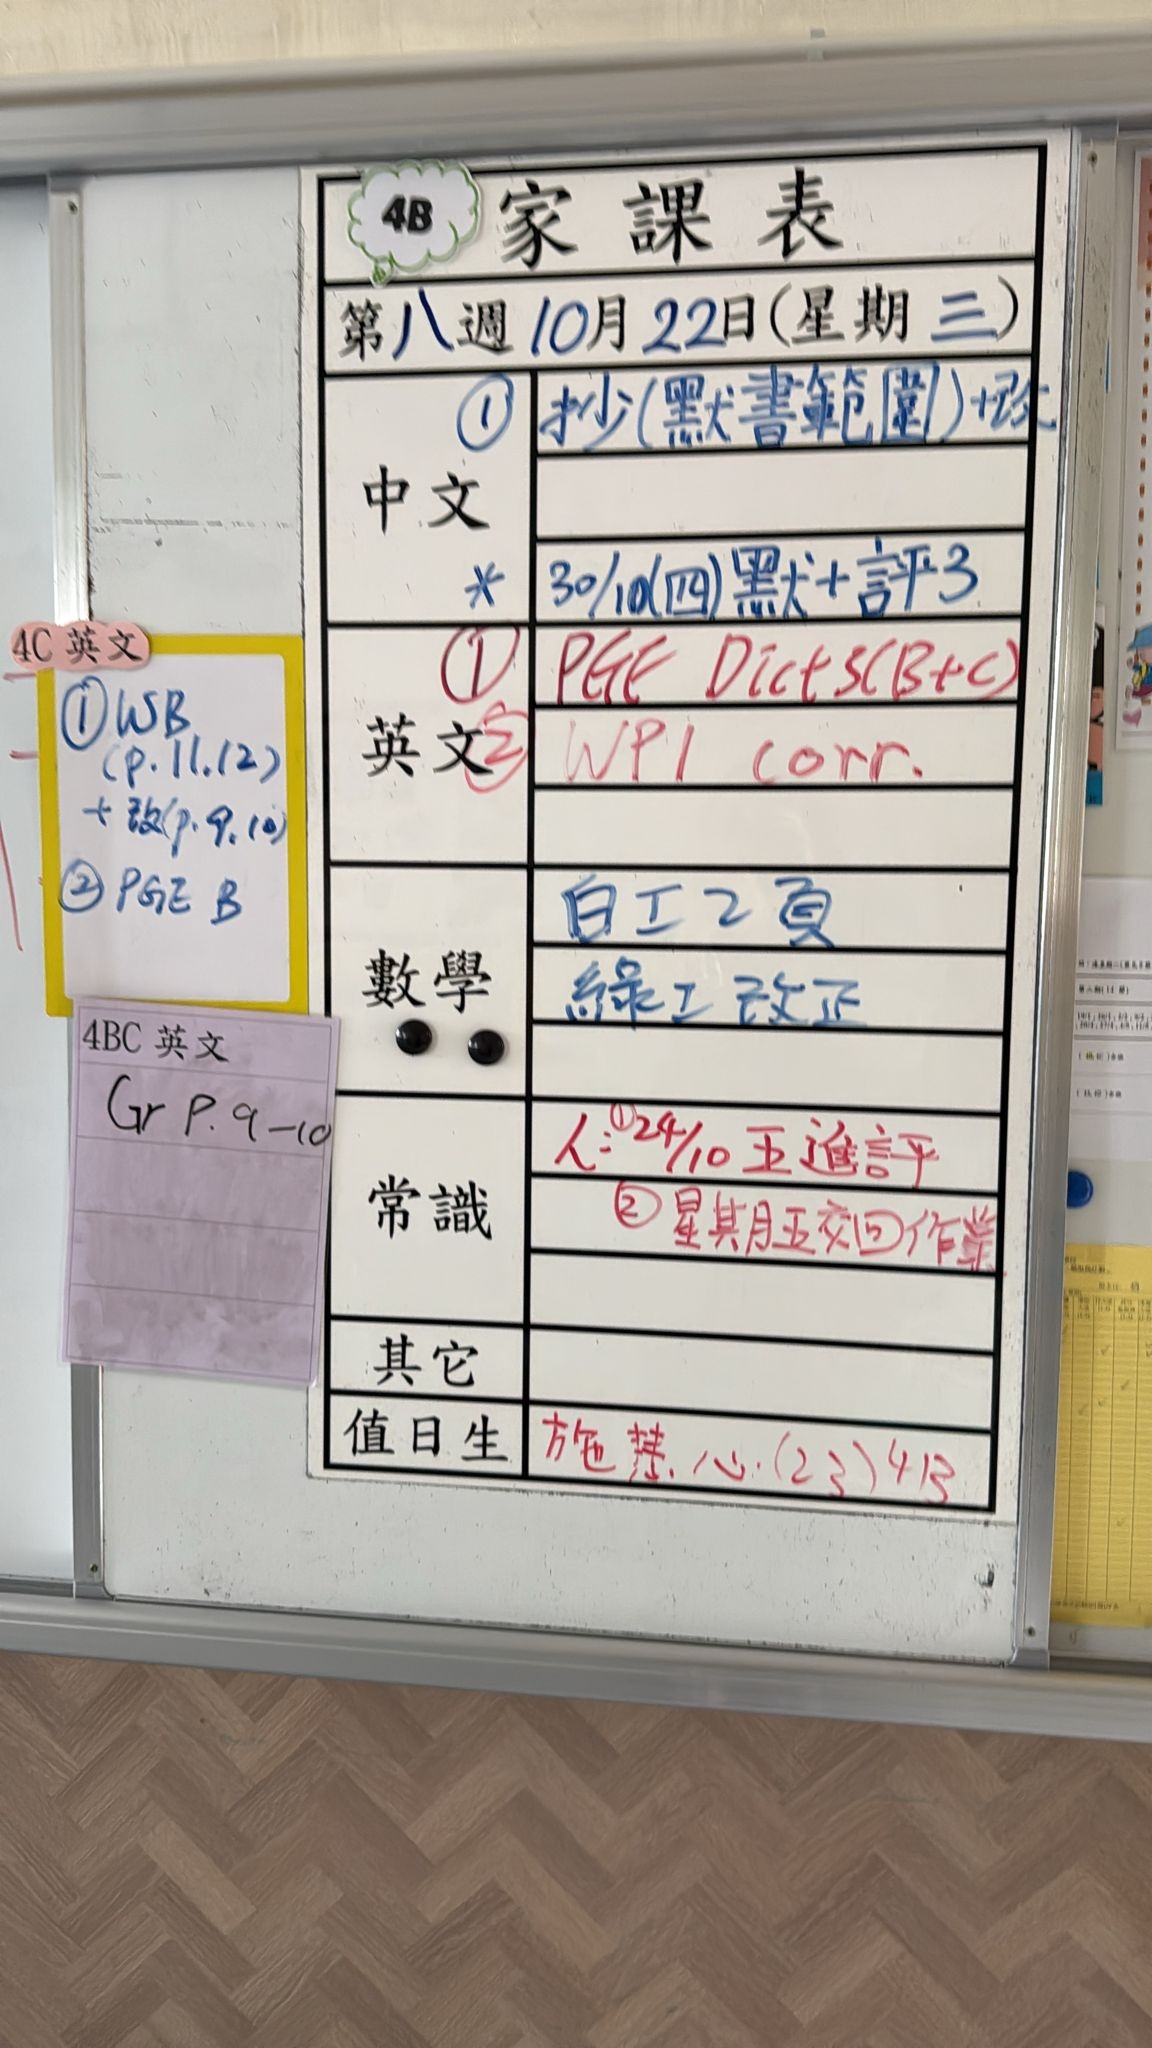 4B 家課表
第八週10月22日(星期三)
中文
① 抄(默書範圍)+改
* 30/10(四)默+評3
英文
① PGE Dict 3(B+C)
② WP1 corr.
數學
白工2頁
綠工改正
常識
人:①24/10 五進評
②星期五交回作業
其它
值日生
施慧心(23)4B
4C 英文
①WSB
(p.11.12)
+改(p.9.10)
②PGE B
4BC 英文
Gr P.9-10